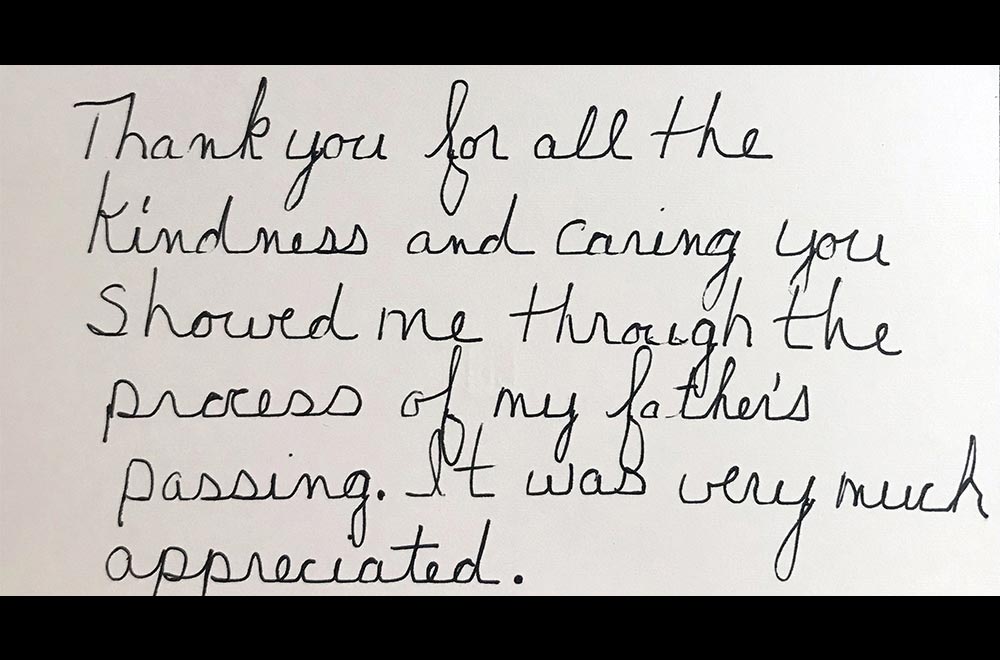 Thank you for all the
kindness and caring you
showed me through the
process of my father's
passing. It was very much
appreciated.